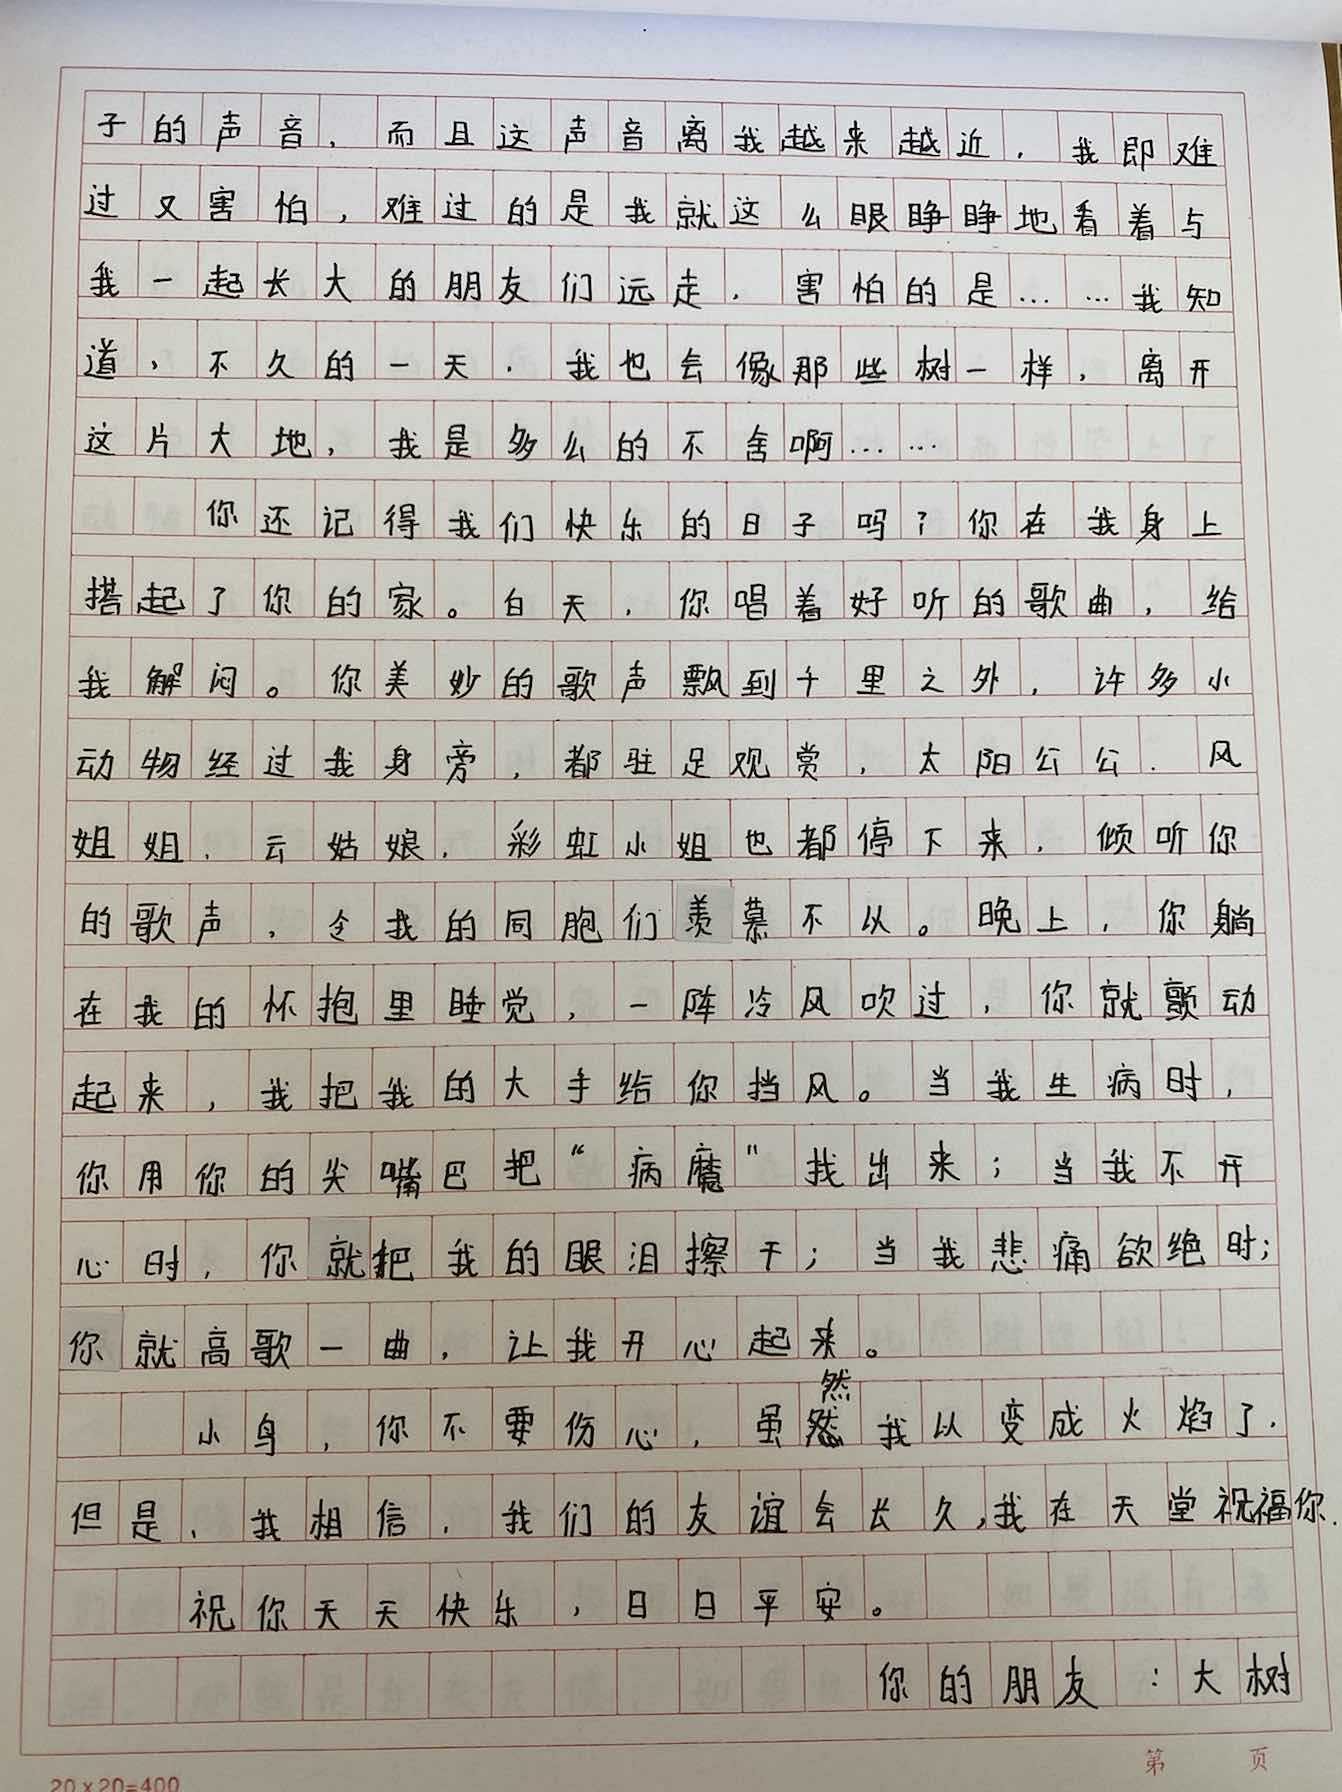 子的声音，而且这声音离我越来越近，我即难
过又害怕，难过的是我就这么眼睁睁地看着与
我一起长大的朋友们远走，害怕的是……我知
道，不久的一天，我也会像那些树一样，离开
这片大地，我是多么的不舍啊……
你还记得我们快乐的日子吗？你在我身上
搭起了你的家。白天，你唱着好听的歌曲，给
我解闷。你美妙的歌声飘到千里之外，许多小
动物经过我身旁，都驻足观赏，太阳公公、风
姐姐、云姑娘，彩虹小姐也都停下来，倾听你
的歌声，令我的同胞们羡慕不以。晚上，你躺
在我的怀抱里睡觉，一阵冷风吹过，你就颤动
起来，我把我的大手给你挡风。当我生病时，
你用你的尖嘴巴把“病魔”找出来；当我不开
心时，你就把我的眼泪擦干；当我悲痛欲绝时；
你就高歌一曲，让我开心起来。
小鸟，你不要伤心，虽然我以变成火焰了，
但是、我相信，我们的友谊会长久，我在天堂祝福你．
祝你天天快乐，日日平安。
你的朋友：大树
第 页
20×20=400